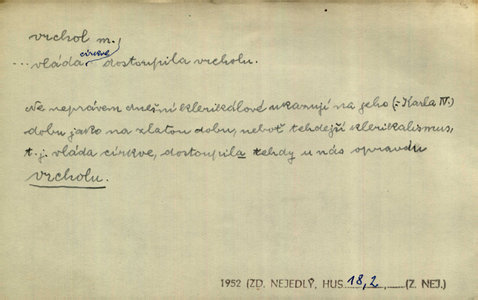 vrchol m.,
... vláda církve dostoupila vrcholu.
Ne neprávem dnešní klerikálové ukazují na jeho (= Karla IV.)
dobu jako na zlatou dobu, neboť tehdejší klerikalismus,
t. j. vláda církve, dostoupila tehdy u nás opravdu
vrcholu.
1952 (ZD. NEJEDLÝ, HUS 18,2, (Z. NEJ.)